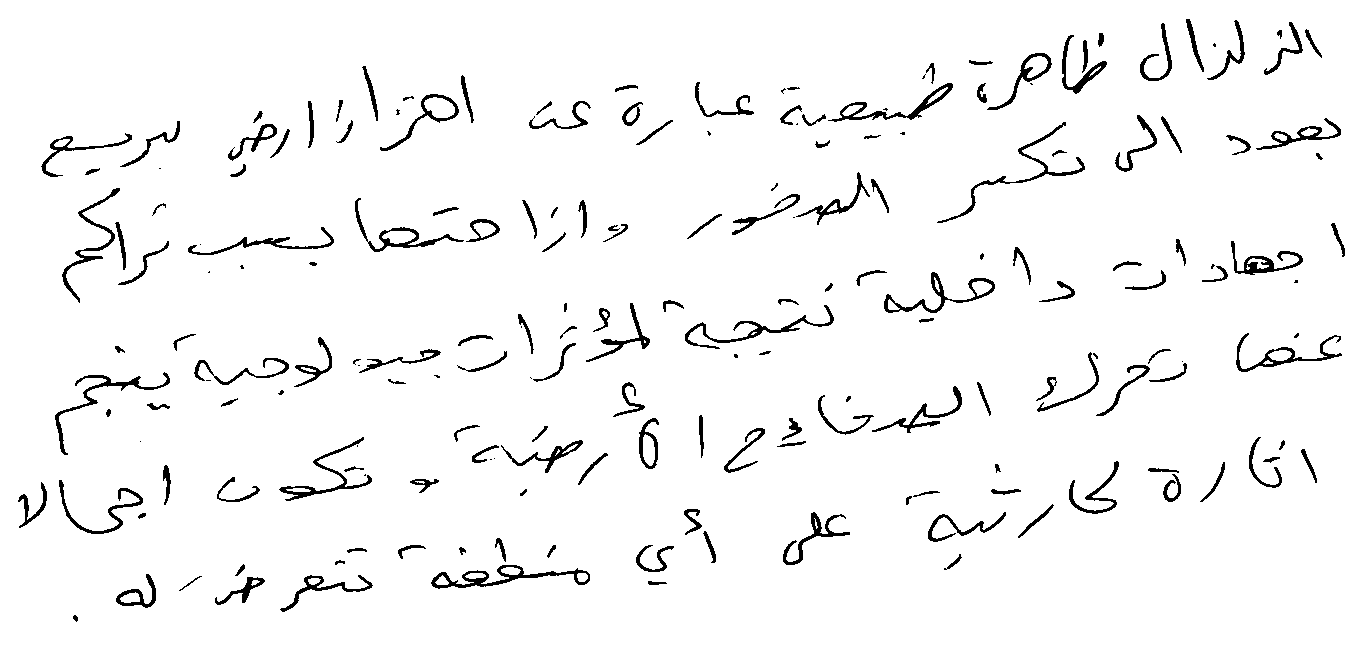 الزلزال ظاهرة طبيعية عبارة عن اهتزاز ارضي سريع
يعود الى تكسر الصخور وازاحتها بسبب تراكم
اجهادات داخلية نتيجة لمؤثرات جيولوجية ينجم
عنها تحرك الصفائح الأرضية وتكون اجمالا
اثاره كارثية على أي منطقة تتعرض له .